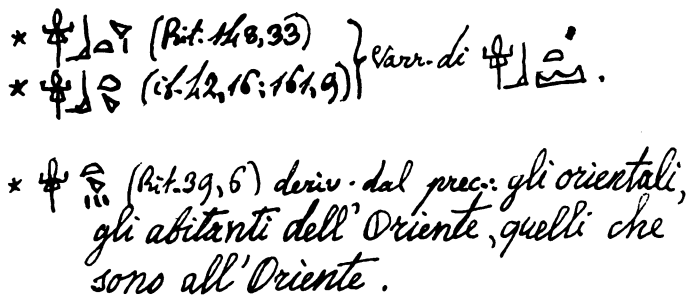 * (Rit. 148, 33)
* (ib. 42, 16; 161, 9) } Varr. di .
* (Rit. 39, 6) deriv. dal prec.: gli orientali,
gli abitanti dell'Oriente, quelli che
sono all'Oriente.